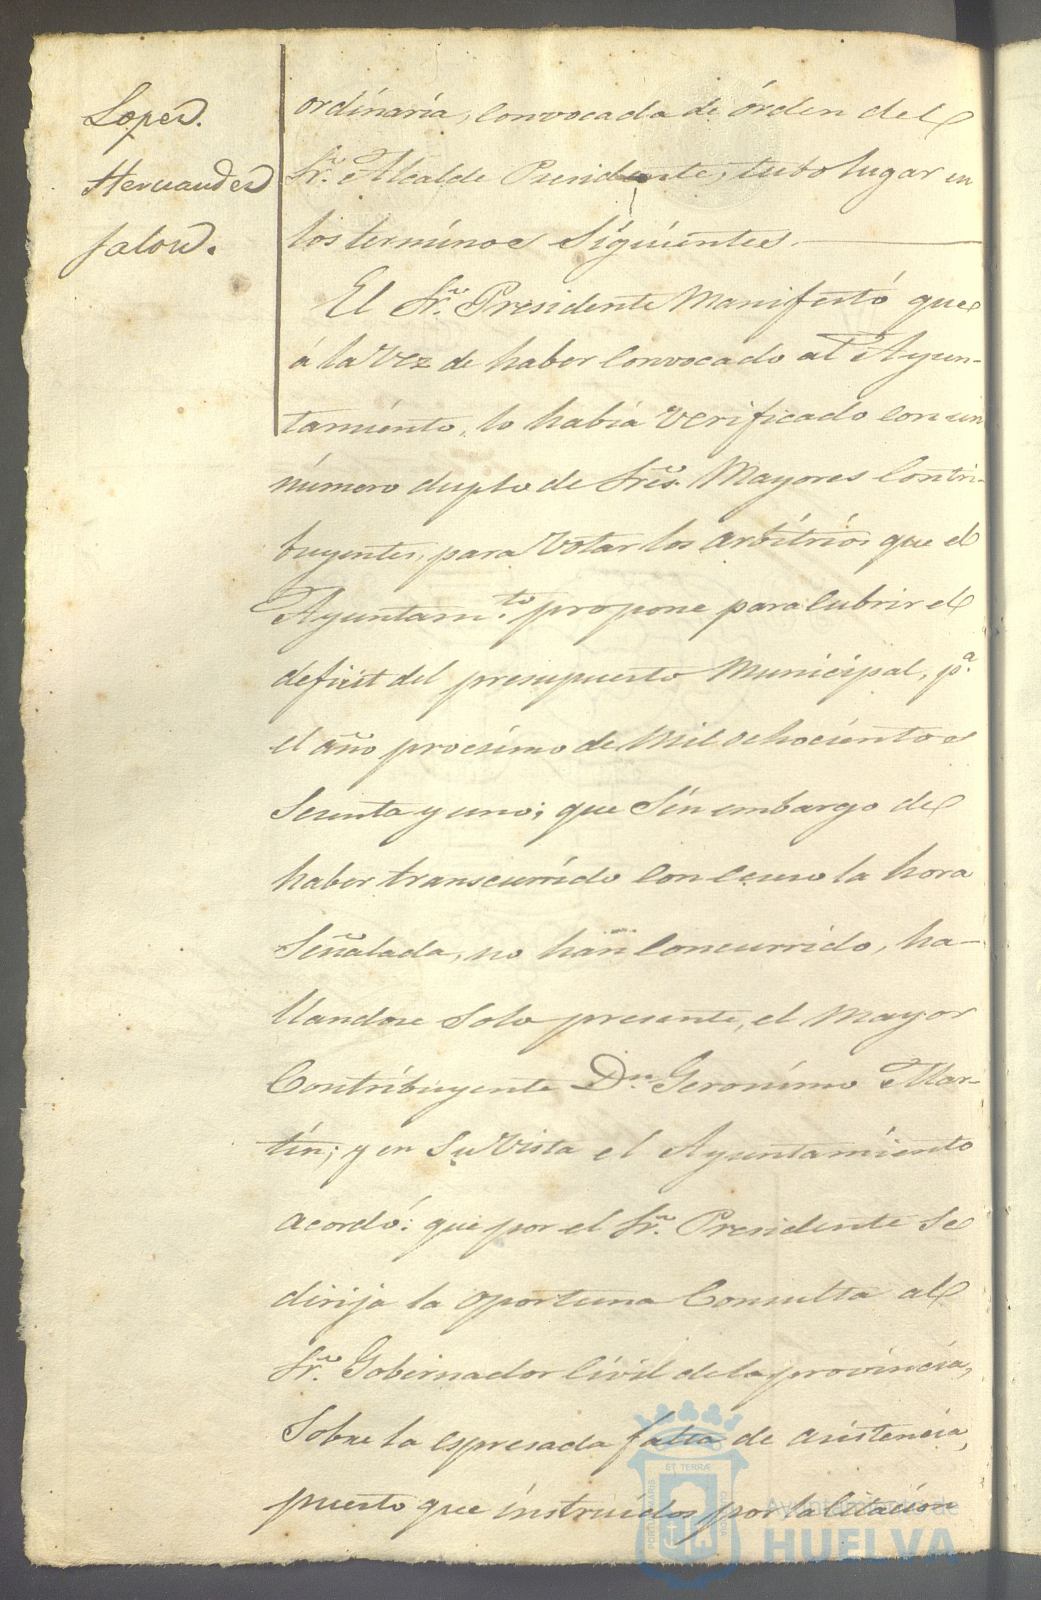 Lopez.
Hernandez
Jalon.
ordinaria, convocada de órden del
Sr. Alcalde Presidente, tubo lugar en
los términos siguientes.
El Sr. Presidente manifestó que
á la vez de haber convocado al Ayun-
tamiento, lo habia verificado con un
número duplo de Sres. Mayores Contri-
buyentes, para votar los arbitrios que el
Ayuntamto. propone para cubrir el
deficit del presupuesto Municipal, pa.
el año procsimo de mil ochocientos
sesenta y uno; que sin embargo de
haber transcurrido con ceuso la hora
señalada, no han concurrido, ha-
llandose solo presente, el mayor
Contribuyente Dn. Geronimo Mar-
tin; y en su vista el Ayuntamiento
acordó: que por el Sr. Presidente se
dirija la oportuna Consulta al
Sr. Gobernador Civil de la provincia,
sobre la espresada falta de asistencia,
puesto que instruidos por la citacion
ET TERRÆ
Ayuntamiento de
HUELVA